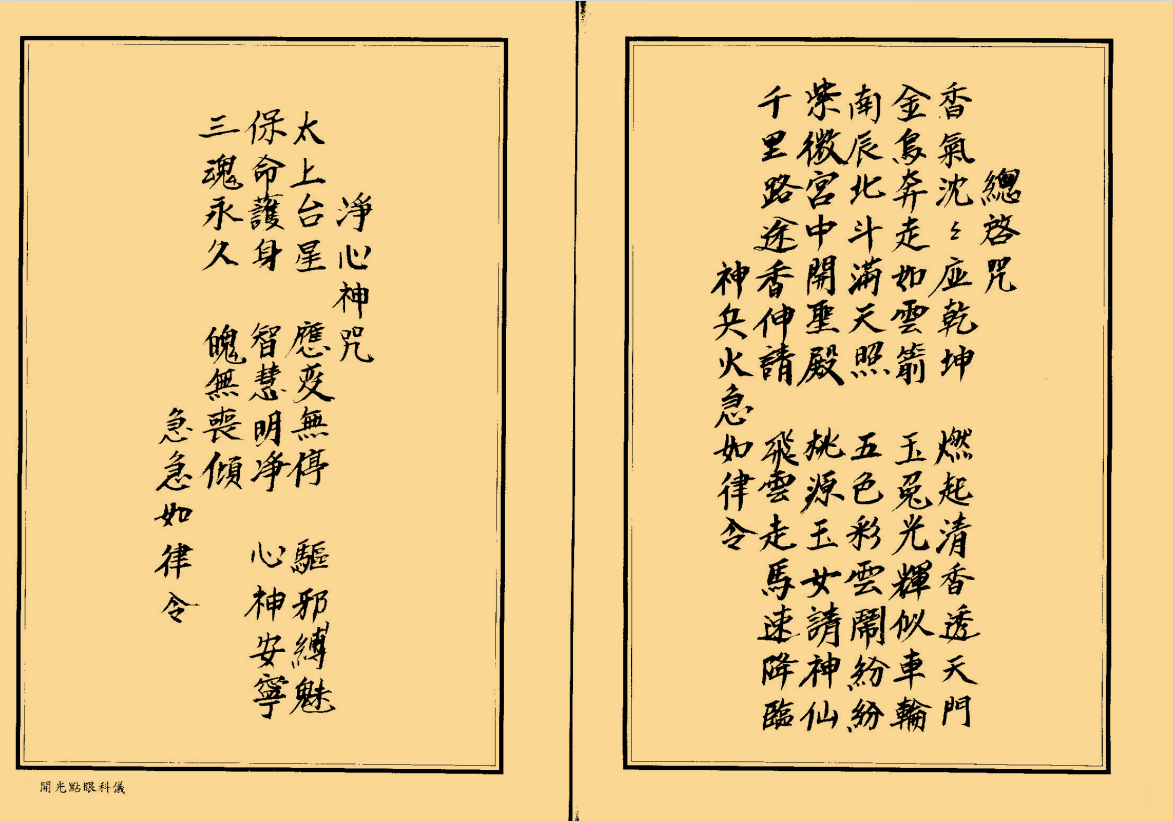 總啓咒
香氣沈々應乾坤 燃起清香透天門
金烏奔走如雲箭 玉兔光輝似車輪
南辰北斗滿天照 五色彩雲鬧紛紛
紫微宮中開聖殿 桃源玉女請神仙
千里路途香伸請 飛雲走馬速降臨
神兵火急如律令
淨心神咒
太上台星 應变無停 驅邪縛魅
保命護身 智慧明净 心神安寧
三魂永久 魄無喪傾
急急如律令
開光點眼科儀